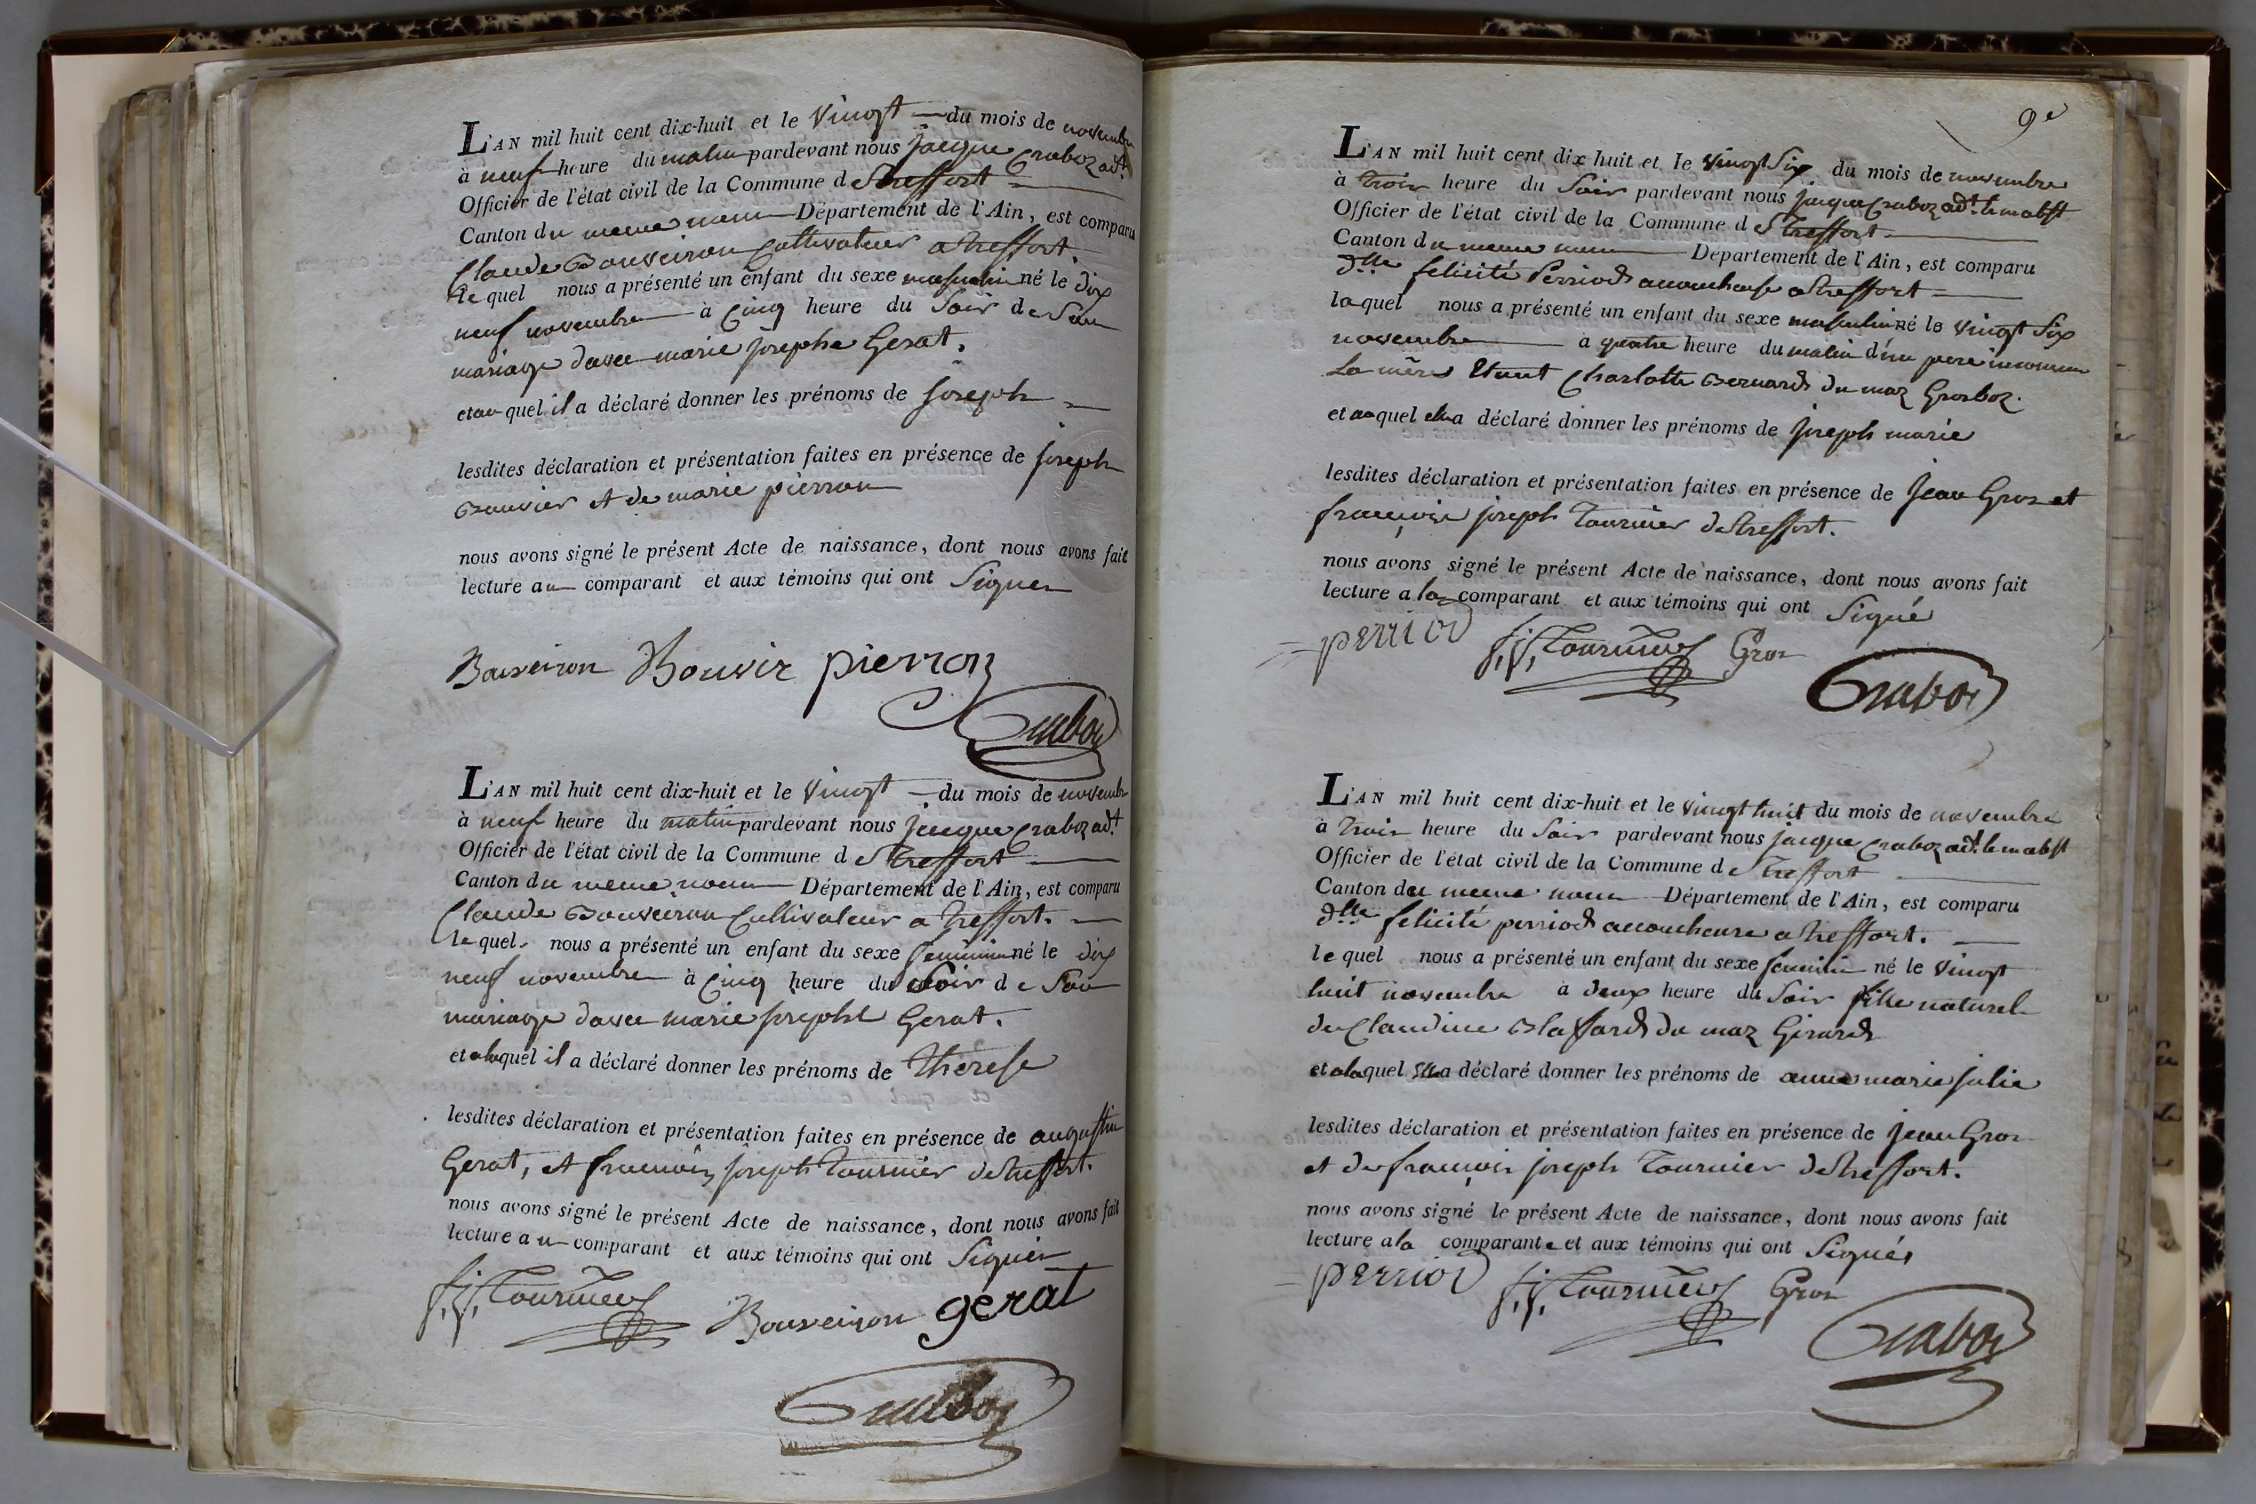 L'AN mil huit cent dix-huit et le vingt du mois de novembre
à neuf heure du matin pardevant nous jacque Craboz adt.
Officier de l'état civil de la Commune de Treffort
Canton du meme nom Département de l'Ain, est comparu
Claude Bouveiron Cultivateur a treffort.
le quel nous a présenté un enfant du sexe masculin né le dix
neuf novembre à Cinq heure du Soir de Son
mariage davec marie josephe Gerat.
et au quel il a déclaré donner les prénoms de joseph
lesdites déclaration et présentation faites en présence de joseph
Bouvier et de marie pierron
nous avons signé le présent Acte de naissance, dont nous avons fait
lecture au comparant et aux témoins qui ont Signer
Bouveiron Bouvir pierron
Craboz
L'AN mil huit cent dix-huit et le vingt du mois de novembre
à neuf heure du matin pardevant nous jacque Craboz adt
Officier de l'état civil de la Commune de Treffort
Canton du meme nom Département de l'Ain, est comparu
Claude Bouveiron Cultivateur a treffort.
le quel nous a présenté un enfant du sexe feminin né le dix
neuf novembre à Cinq heure du Soir de Son
mariage davec marie josephe Gerat.
et a la quel il a déclaré donner les prénoms de Therese
lesdites déclaration et présentation faites en présence de augustin
Gerat, et francois joseph Tournier de treffort.
nous avons signé le présent Acte de naissance, dont nous avons fait
lecture au comparant et aux témoins qui ont Signer
f. j. Tournier Bouveiron gerat
Craboz
9e
L'AN mil huit cent dix huit et le vingt Six du mois de novembre
à trois heure du Soir pardevant nous jacque Craboz adt. le m abst
Officier de l'état civil de la Commune de Treffort
Canton du meme nom Département de l'Ain, est comparu
dlle felicité Perriod accoucheuse a treffort
la quel nous a présenté un enfant du sexe masculin né le vingt Six
novembre à quatre heure du matin d'un pere inconnu
La mère Etant Charlotte Bernard du maz Grosboz.
et au quel elle a déclaré donner les prénoms de joseph marie
lesdites déclaration et présentation faites en présence de jean Gros et
françois joseph Tournier de treffort.
nous avons signé le présent Acte de naissance, dont nous avons fait
lecture a la comparant et aux témoins qui ont Signé
perriod f. j. Tournier Gros
Craboz
L'AN mil huit cent dix-huit et le vingt huit du mois de novembre
à trois heure du Soir pardevant nous jacque Craboz adt. le m abst
Officier de l'état civil de la Commune de Treffort
Canton du meme nom Département de l'Ain, est comparu
dlle felicité perriod accoucheuse a treffort.
le quel nous a présenté un enfant du sexe feminin né le vingt
huit novembre à deux heure du Soir fille naturel
de Claudine Blaffard du maz Girard
et a la quel elle a déclaré donner les prénoms de anne marie julie
lesdites déclaration et présentation faites en présence de jean Gros
et de françois joseph Tournier de treffort.
nous avons signé le présent Acte de naissance, dont nous avons fait
lecture a la comparante et aux témoins qui ont Signés
perriod f. j. Tournier Gros
Craboz